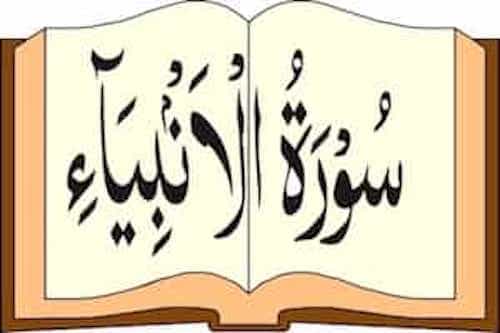 سُوْرَةُ الْاَنْۢبِيَآءِ